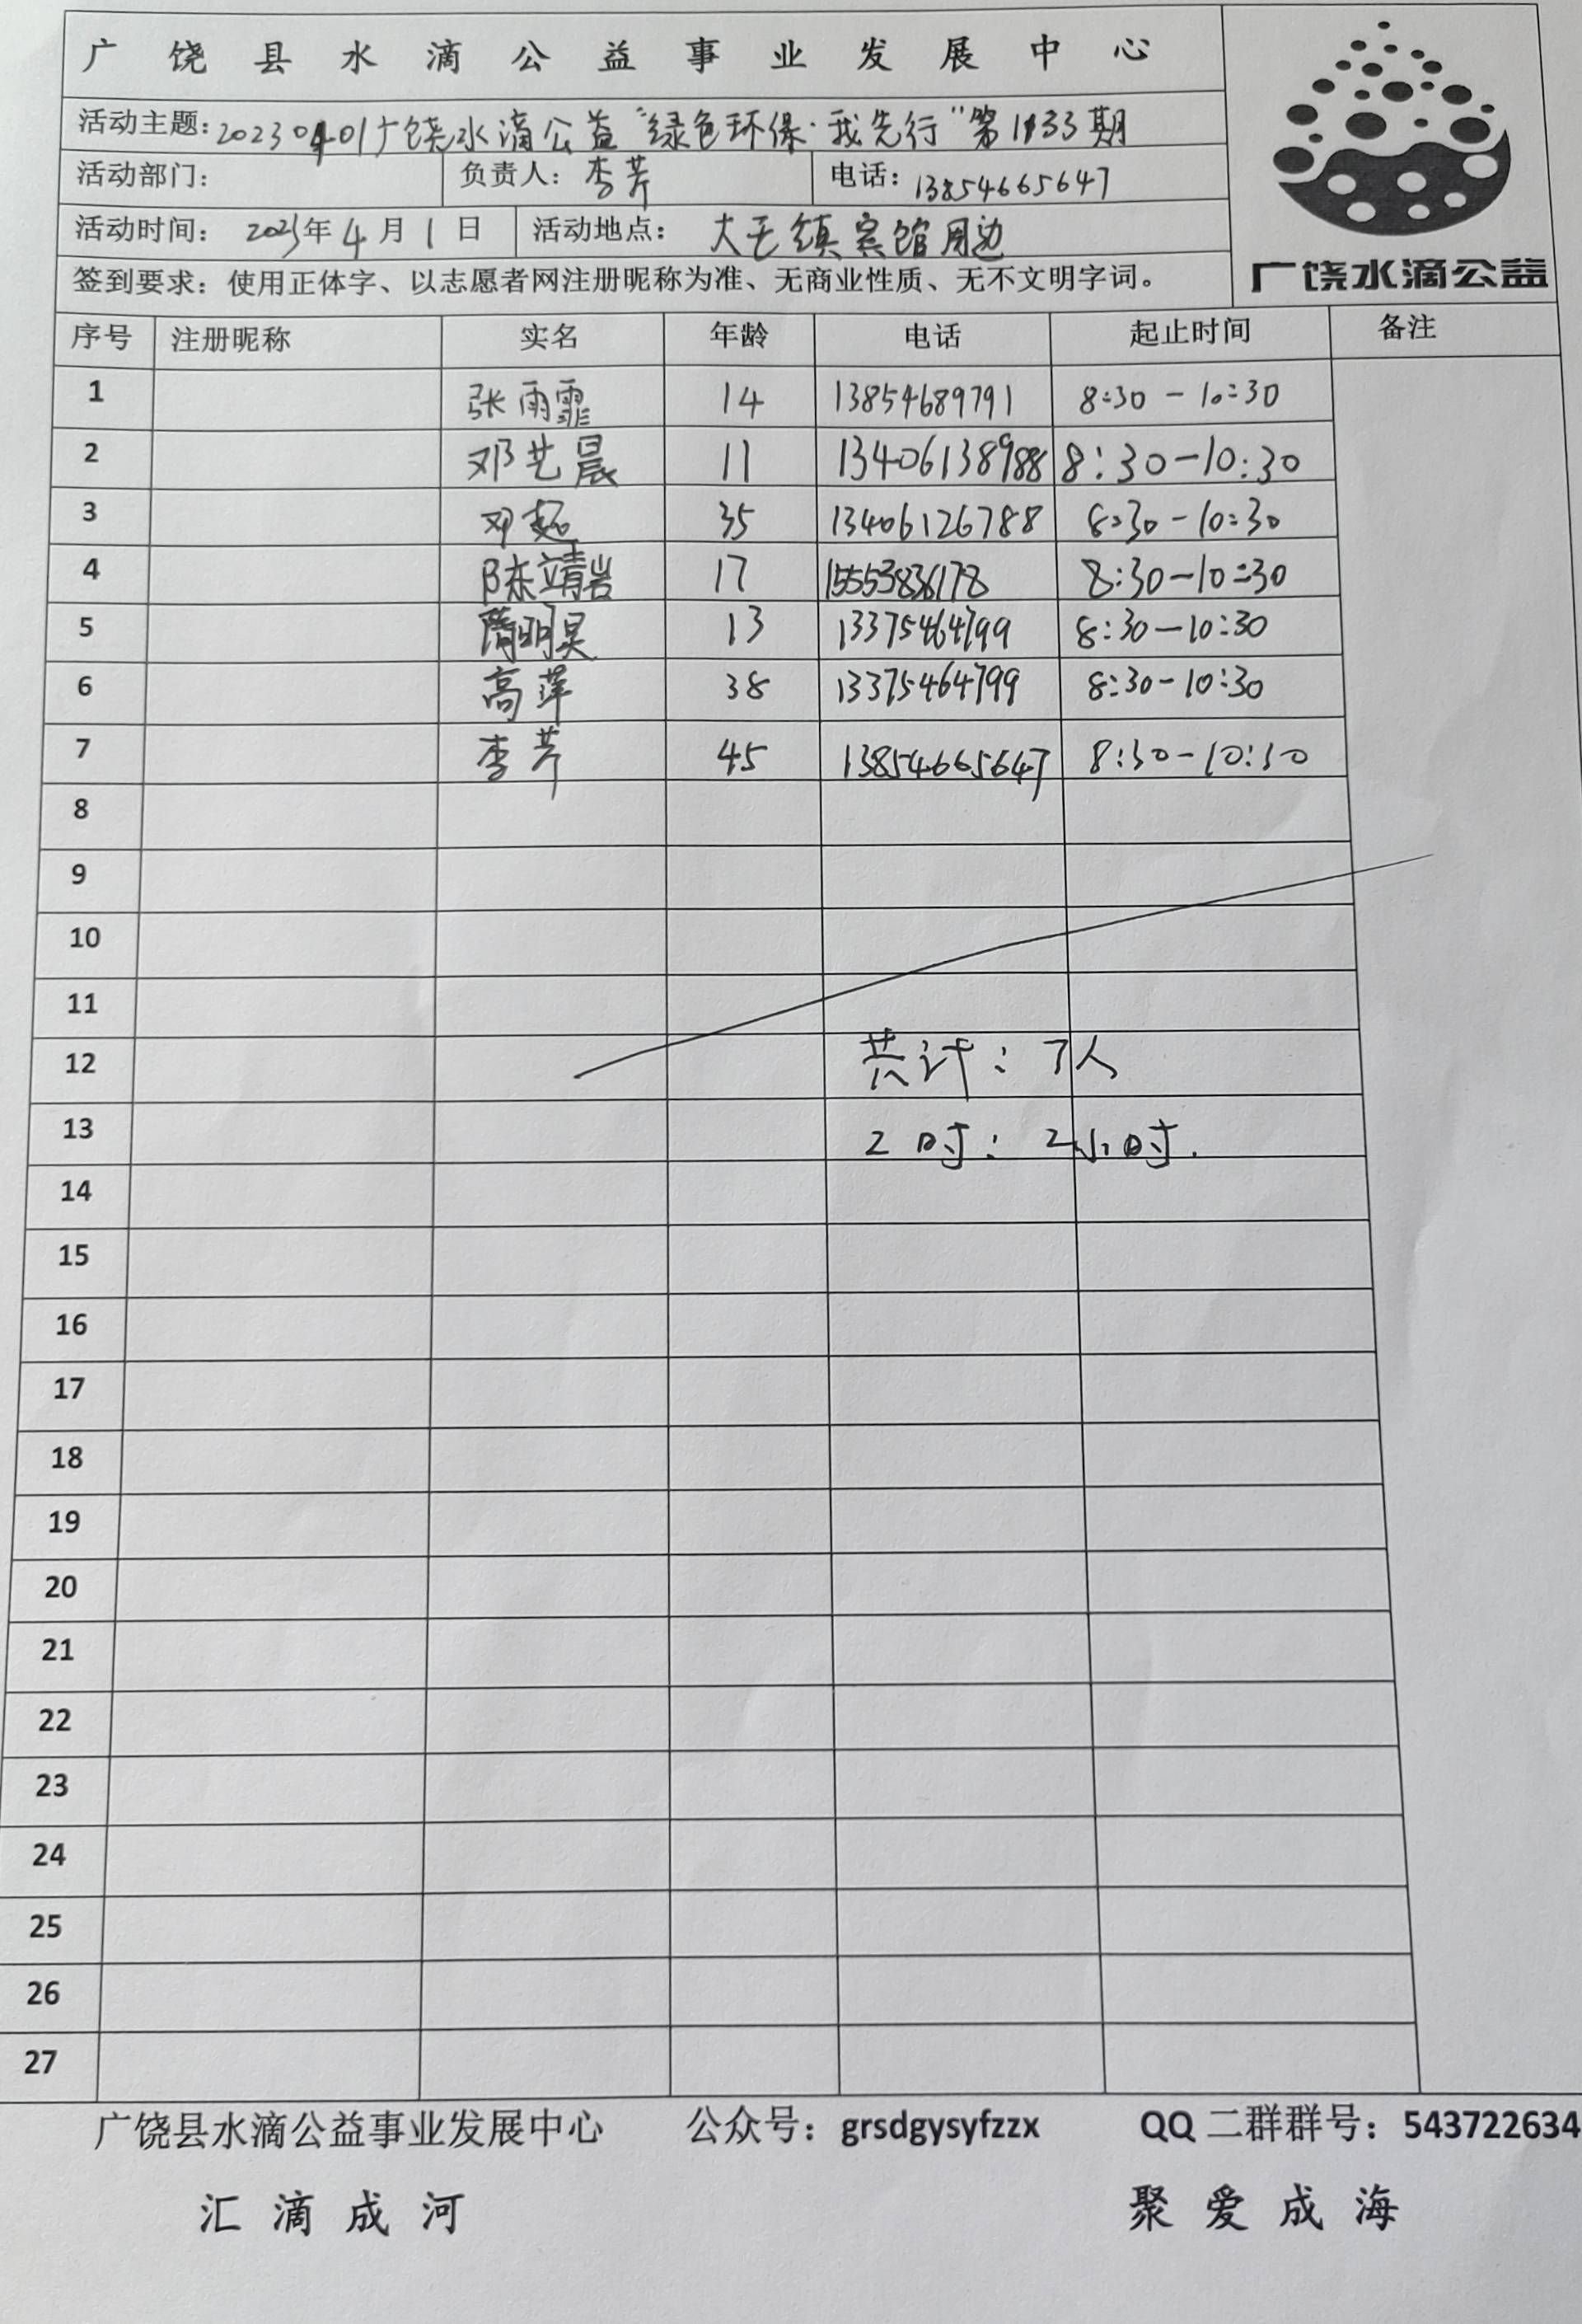 广饶县水滴公益事业发展中心
活动主题：20230401广饶水滴公益“绿色环保·我先行”第1133期
活动部门： 负责人：李芹 电话：13854665647
活动时间：2023年4月1日 活动地点：大王镇宾馆周边
签到要求：使用正体字、以志愿者网注册昵称为准、无商业性质、无不文明字词。
广饶水滴公益
序号 注册昵称 实名 年龄 电话 起止时间 备注
1 张雨霏 14 13854689791 8:30-10:30
2 邓艺晨 11 13406138988 8:30-10:30
3 邓超 35 13406126788 8:30-10:30
4 陈靖岩 17 15553836178 8:30-10:30
5 隋明昊 13 13375464799 8:30-10:30
6 高萍 38 13375464799 8:30-10:30
7 李芹 45 13854665647 8:30-10:30
8
9
10
11
12 共计：7人
13 2时：2小时.
14
15
16
17
18
19
20
21
22
23
24
25
26
27
广饶县水滴公益事业发展中心 公众号：grsdgysyfzzx QQ二群群号：543722634
汇滴成河 聚爱成海